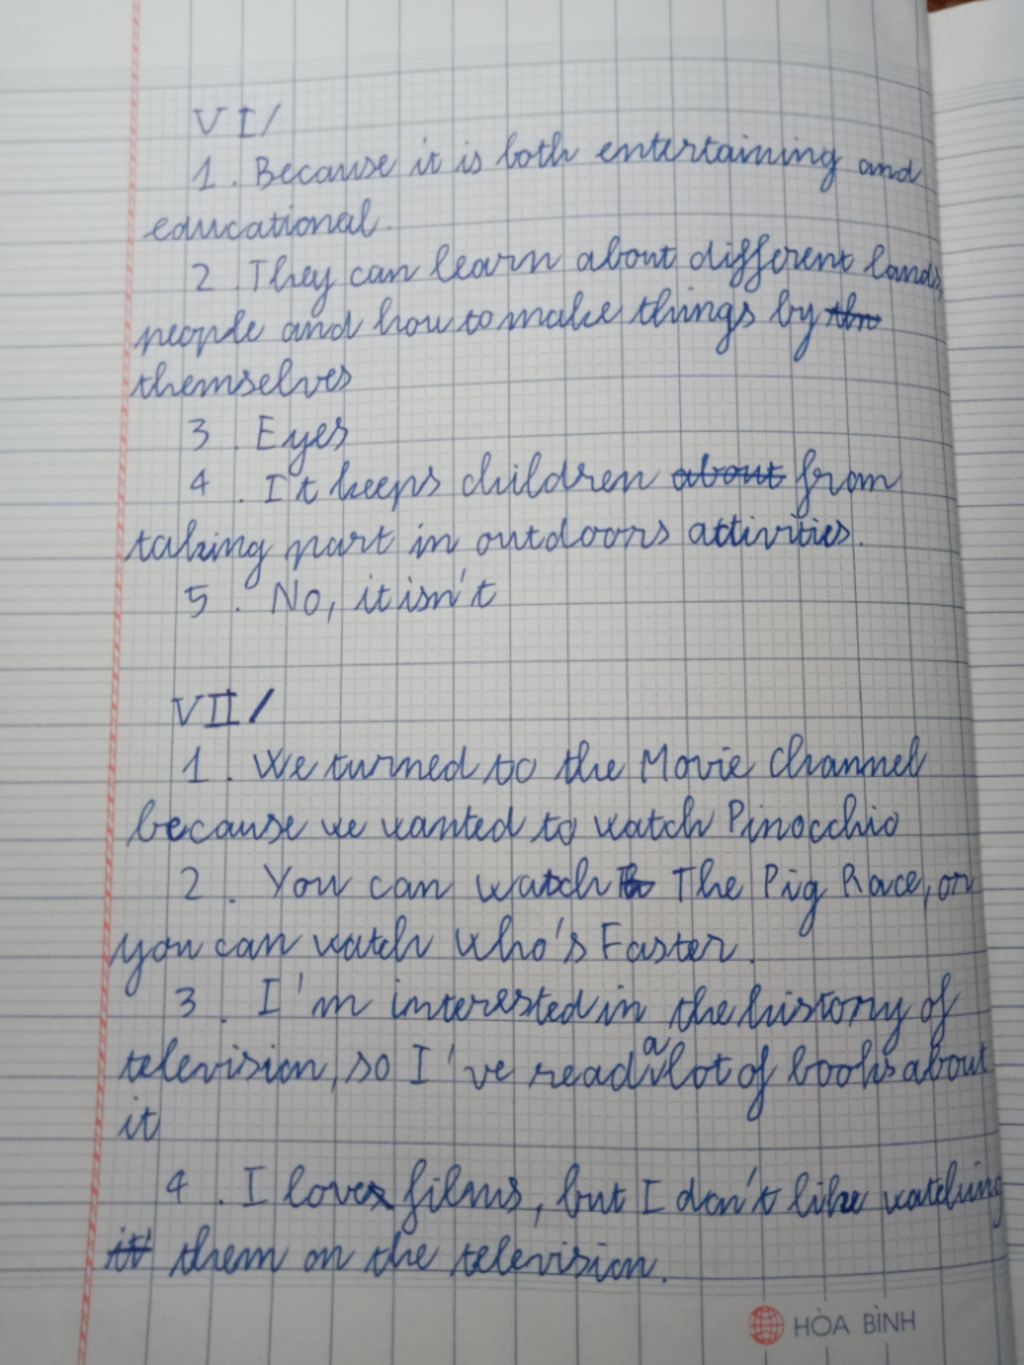 VI/
1. Because it is both entertaining and
educational.
2. They can learn about different lands,
people and how to make things by thn
themselves
3. Eyes
4. It keeps children about from
taking part in outdoors attivities.
5. No, it isn't
VII/
1. We turned to the Movie Channel
because we wanted to watch Pinocchio
2. You can watch The Pig Race, or
you can watch Who's Faster.
3. I'm interested in the history of
television, so I've read a lot of books about
it
4. I love films, but I don't like watching
it them on the television.
HÒA BÌNH